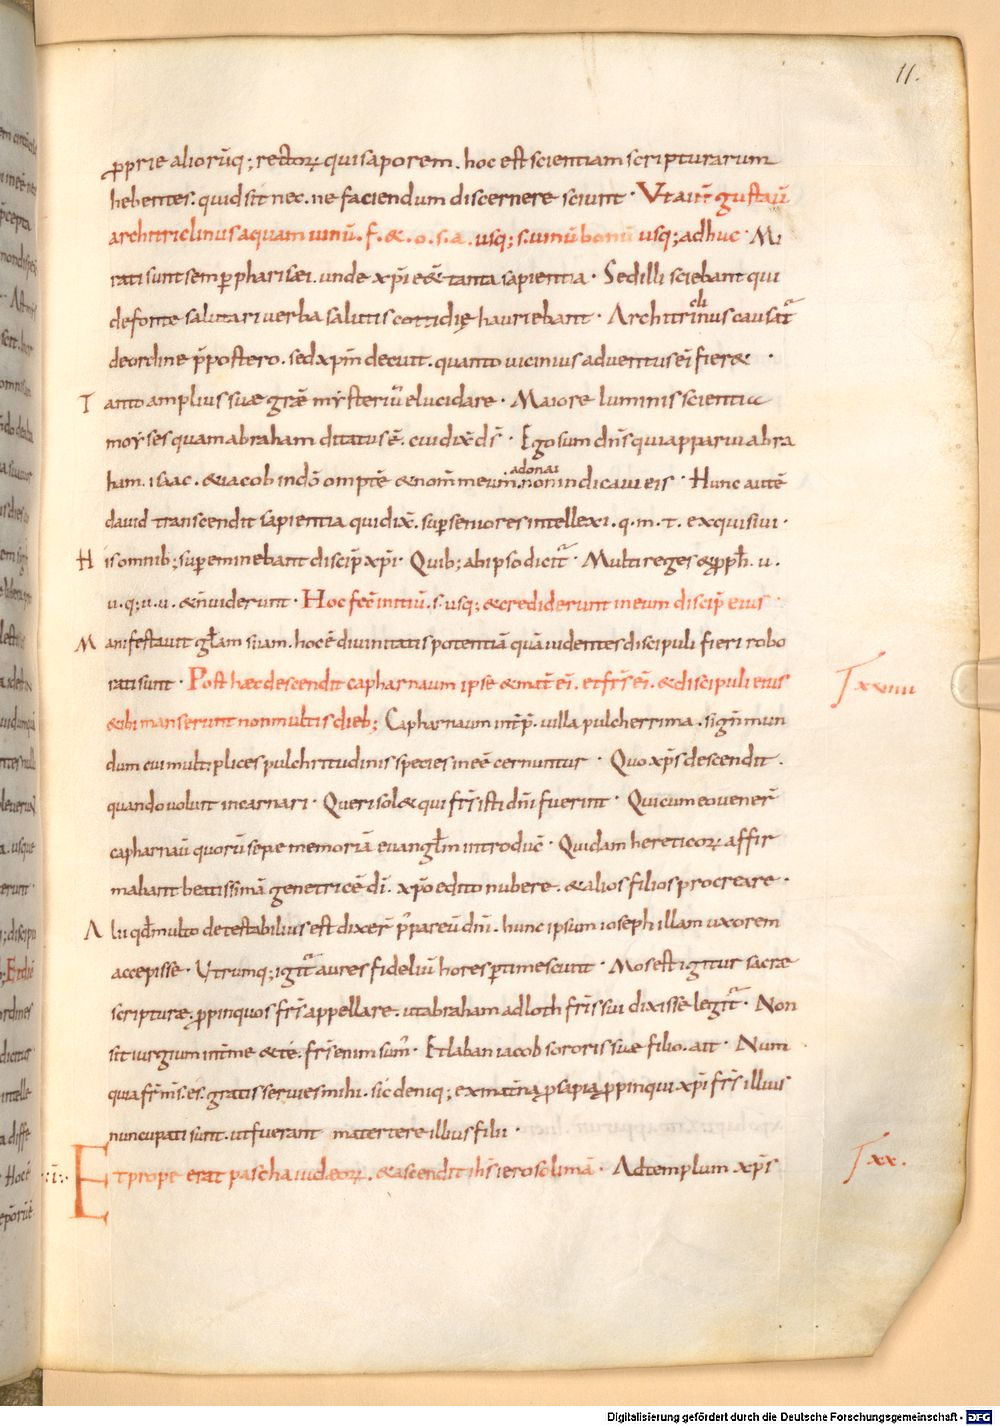 11.
ꝓprie aliorūq; rectoꝝ qui saporem. hoc est scientiam scripturarum
hebentes. quid sit nec. ne faciendum discernere sciunt · Vt aut̄ gustaū
architriclinus aquam uinū. f. &. o. s. a. usq; s. uinū bonū usq; adhuc · Mi
rati sunt semꝑ pharisæi. unde xp̄i eēt tanta sapientia · Sed illi sciebant qui
de fonte salutari uerba salutis cottidię hauriebant · Architricli̇nus causat̃
de ordine p̄postero. sed xp̄m decuit. quanto uicinius aduentus ei fier& ·
Tanto amplius suæ gr̄æ mẏsteriū elucidare · Maiore luminis scientiæ
moẏses quam abraham ditatus ē. cui dix̄ ds̄ · Ego sum dn̄s qui apparui abra
ham. isaac. & iacob in dō omptē & nom̄ meum adonai non indicaui eis · Hunc autē
dauid transcendit sapientia qui dix̄. suꝑ seniores intellexi. q. m. t. exquisiui ·
His omnib; suꝑeminebant discip̄ xp̄i · Quib; ab ipso dicit̃ · Multi reges & ꝓph̄. u.
u. q; u. u. & n̄ uiderunt · Hoc fec̄ initiū. s. usq; & crediderunt in eum discip̄ eius ·
Manifestauit gl̄am suam. hoc ē diuinitatis potentiā quā uidentes discipuli fieri robo
rati sunt · Post hæc descendit capharnaum ipse & mat̄ ei. et fr̄s ei. & discipuli eius
T xxiiii
& ibi manserunt non multis dieb; Capharnaum int̄p̄. uilla pulcherrima. sign̄ mun
dum cui multiplices pulchritudinis species ineē cernuntur · Quo xp̄s descendit.
quando uoluit incarnari · Queri sol& qui fr̄s isti dn̄i fuerint · Qui cum eo uener̄
capharnaū quorū sepe memoriā euangl̄m introduc̄ · Quidam hereticoꝝ affir
mabant beatissimā genetricē dī. xp̄o edito nubere. & alios filios procreare ·
Alii qd̄ multo detestabilius est dixer̄ p̄pareū dn̄i. hunc ipsum ioseph illam uxorem
accepisse · Utrumq; igit̃ aures fideliū horesꝑtimescunt · Mos est igitur sacræ
scripturæ. ꝓpinquos fr̄s appellare. ut abraham ad loth fr̄s sui dixisse legit̃ · Non
sit iurgium int̄ me & te. fr̄s enim sum̄ · Et laban iacob sororis suæ filio. ait · Num
quia fr̄ m̄s. es. gratis seruies mihi. sic deniq; ex mat̄na ꝓsapia ꝓpinqui xp̄i fr̄s illius
nuncupati sunt. ut fuerant matertere illius filii ·
·:i:· Et prope erat pascha iudæoꝝ. & ascendit ih̄s ierosolimā · Ad templum xp̄s
T xx.
Digitalisierung gefördert durch die Deutsche Forschungsgemeinschaft - DFG